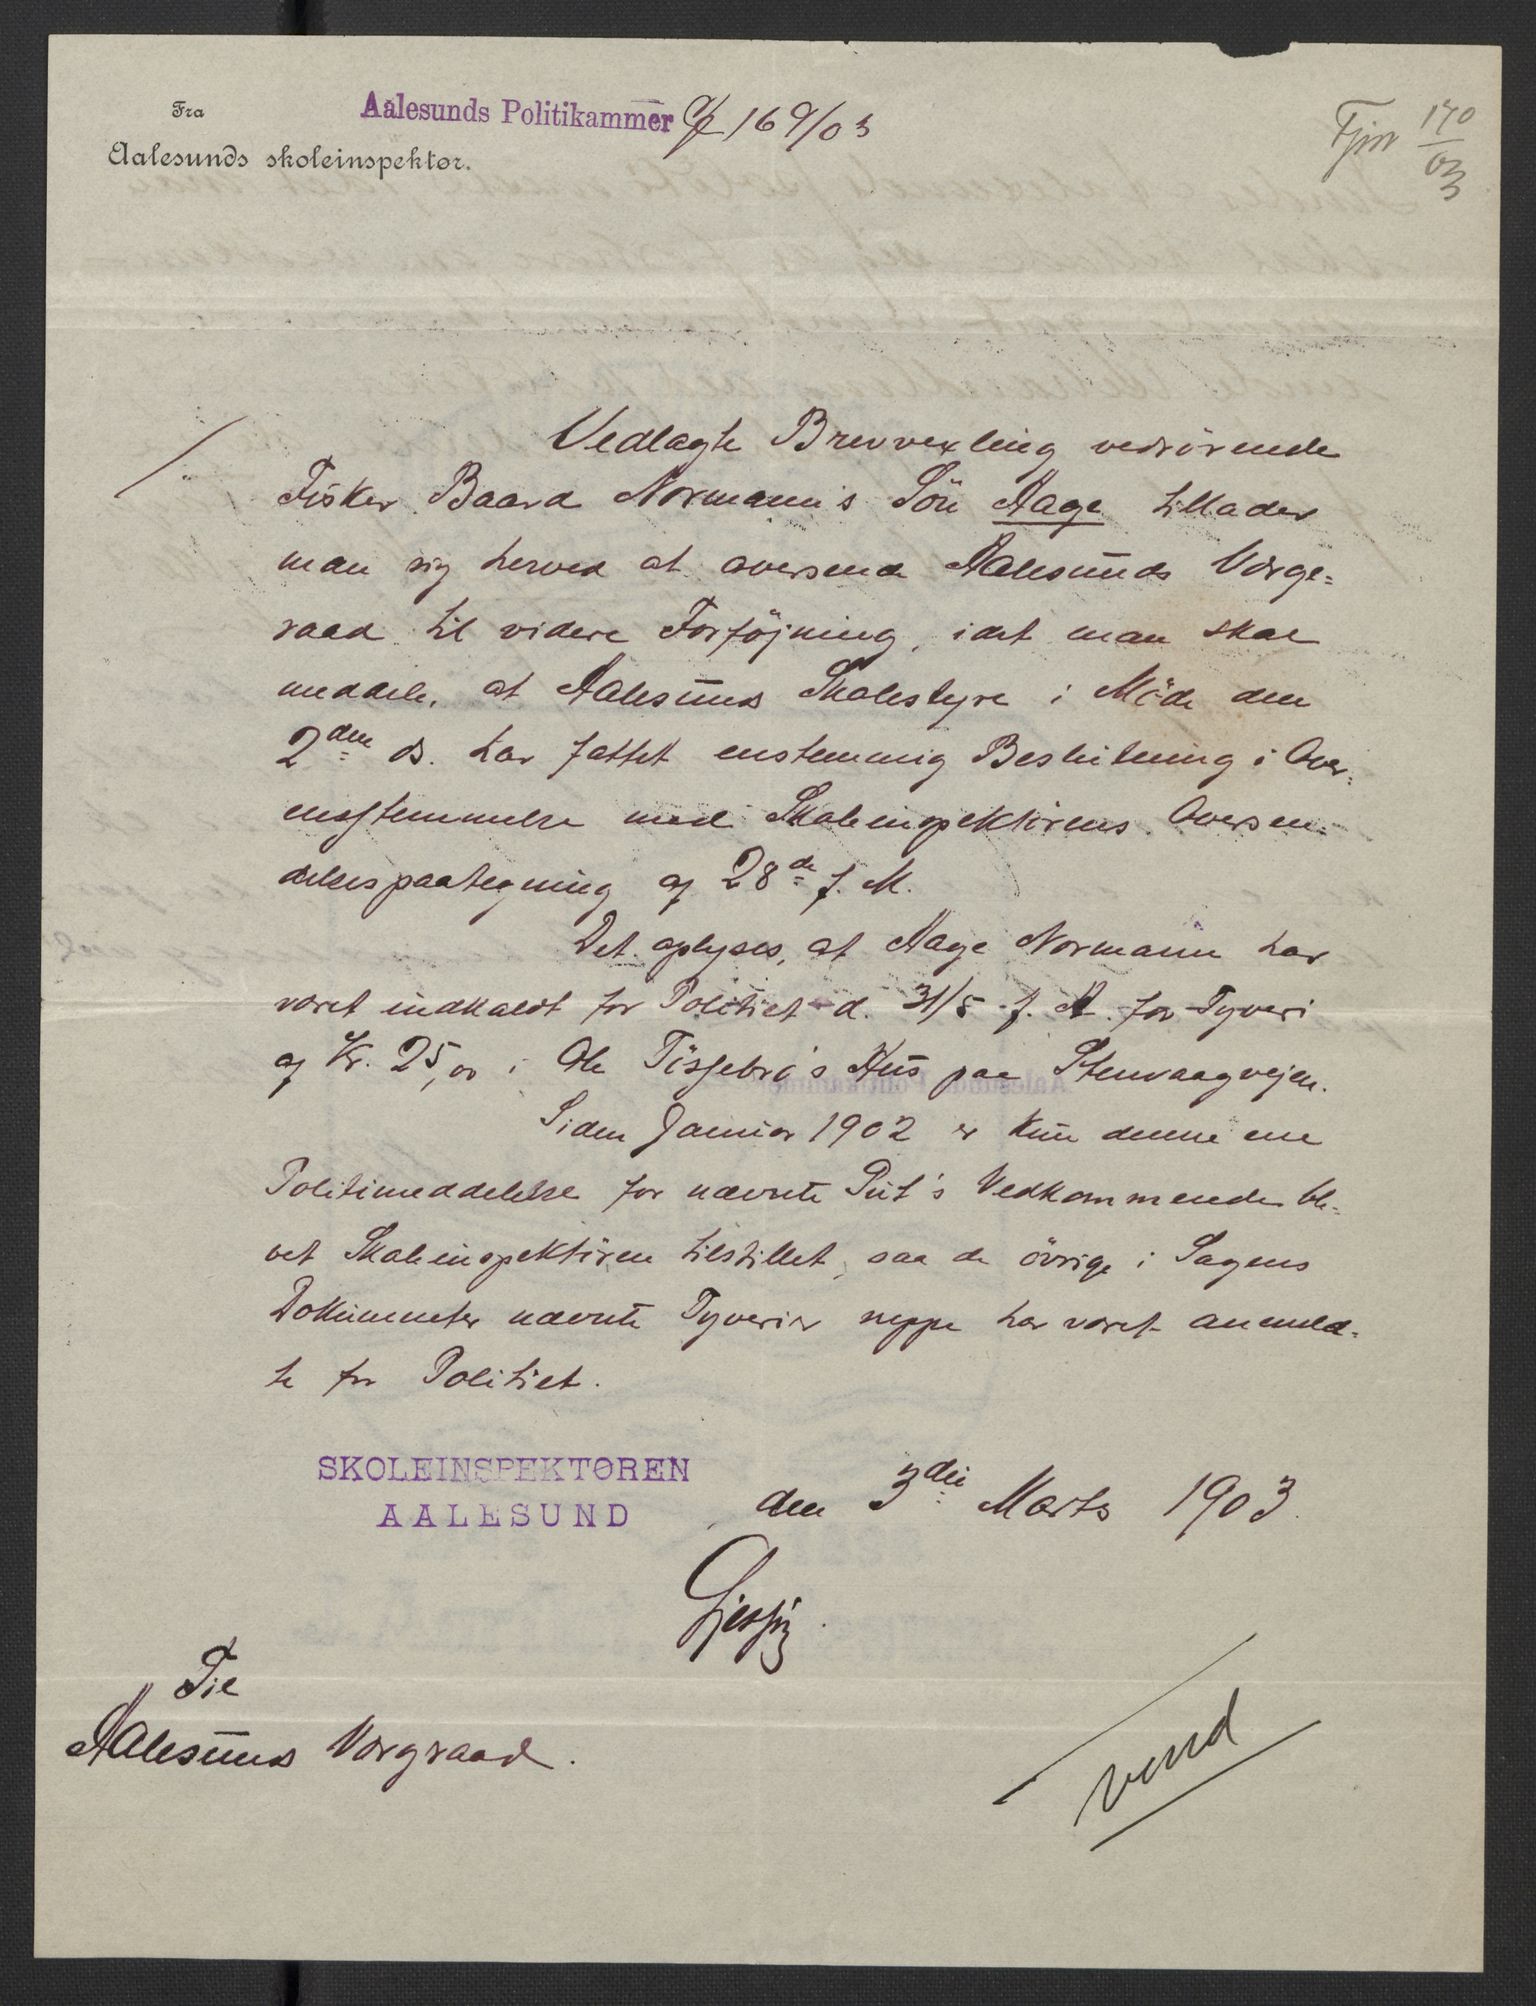 Fra
Aalesunds skoleinspektør.
Aalesunds Politikammer 169/03
170
03
Vedlagte Brevvexling vedrörende
Fisker Baard Normann's Sön Aage tillader
man sig herved at oversende Aalesunds Værge=
raad til videre Forföjning, idet man skal
meddele, at Aalesunds Skolestyre i Möde den
2den ds. har fattet enstemmig Beslutning i Over=
ensstemmelse med Skoleinspektörens Oversen=
delsespaategning af 28de f. M.
Det oplyses, at Aage Normann har
været indkaldt for Politiet d. 31/5 f. A. for Tyveri
af Kr. 25,00 i Ole Hus paa Stenvaagvejen.
Siden Januar 1902 er kun denne ene
Politimeddelelse for nævnte Gut's Vedkommende ble=
vet Skoleinspektören tilstillet, saa de övrige i Sagens
Dokumenter nævnte Tyverier neppe har været anmeld=
te for Politiet.
SKOLEINSPEKTØREN
AALESUND
den 3die Marts 1903.
Til
Aalesunds Værgeraad.
vend